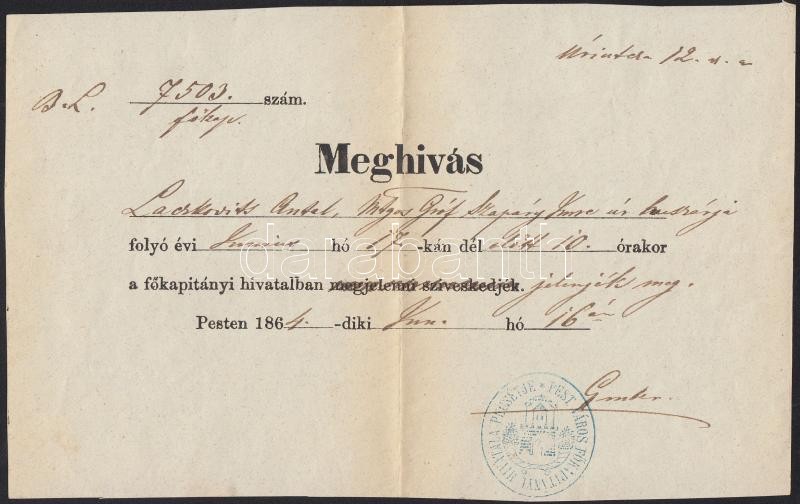 12
B. L. 7503. szám.
főkap.
Meghivás
Laczkovits Antal, Mlgos Gróf Szapáry Imre úr huszárja
folyó évi Junius hó 17-kán dél előtt 10. órakor
a főkapitányi hivatalban megjelenni sziveskedjék. jelenjék meg.
Pesten 1864.-diki Jun. hó 16án
PEST VÁROS FŐKAPITÁNYI HIVATALA PECSÉTJE
darabanth.com